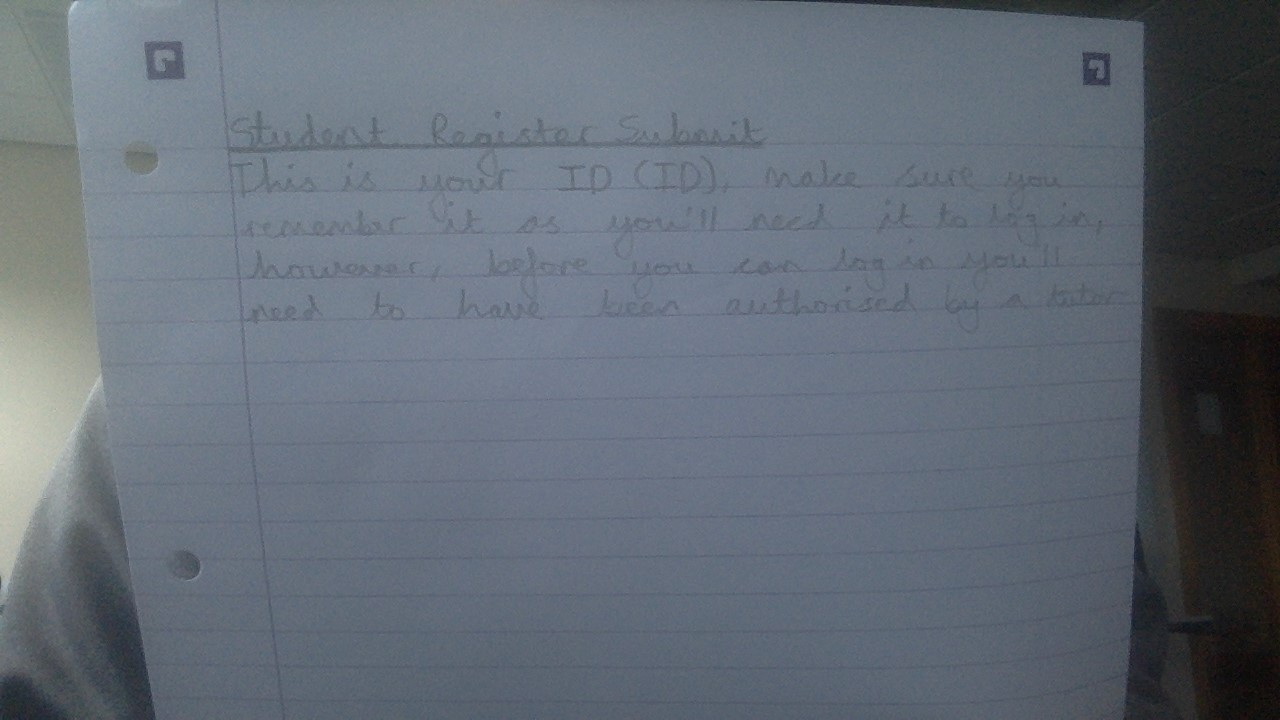 Student Register Submit
This is your ID (ID), make sure you
remember it as you'll need it to log in,
however, before you can log in you'll
need to have been authorised by a tutor